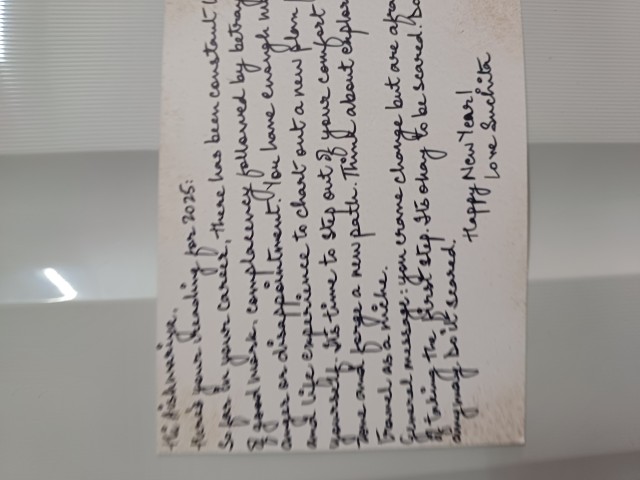 Hi Aishwariya,
Here's your reading for 2025:
So far in your career, there has been constant
of good work, complacency followed by betray
anger or disappointment. You have enough
and life experience to chart out a new plan
yourself. Its time to step out of your comfort
zone and forge a new path. Think about explor
travel as a niche.
General message: you crave change but are afra
of taking the first step. Its okay to be scared. Do
anyway. Do it scared.
Happy New Year!
Love Suchita